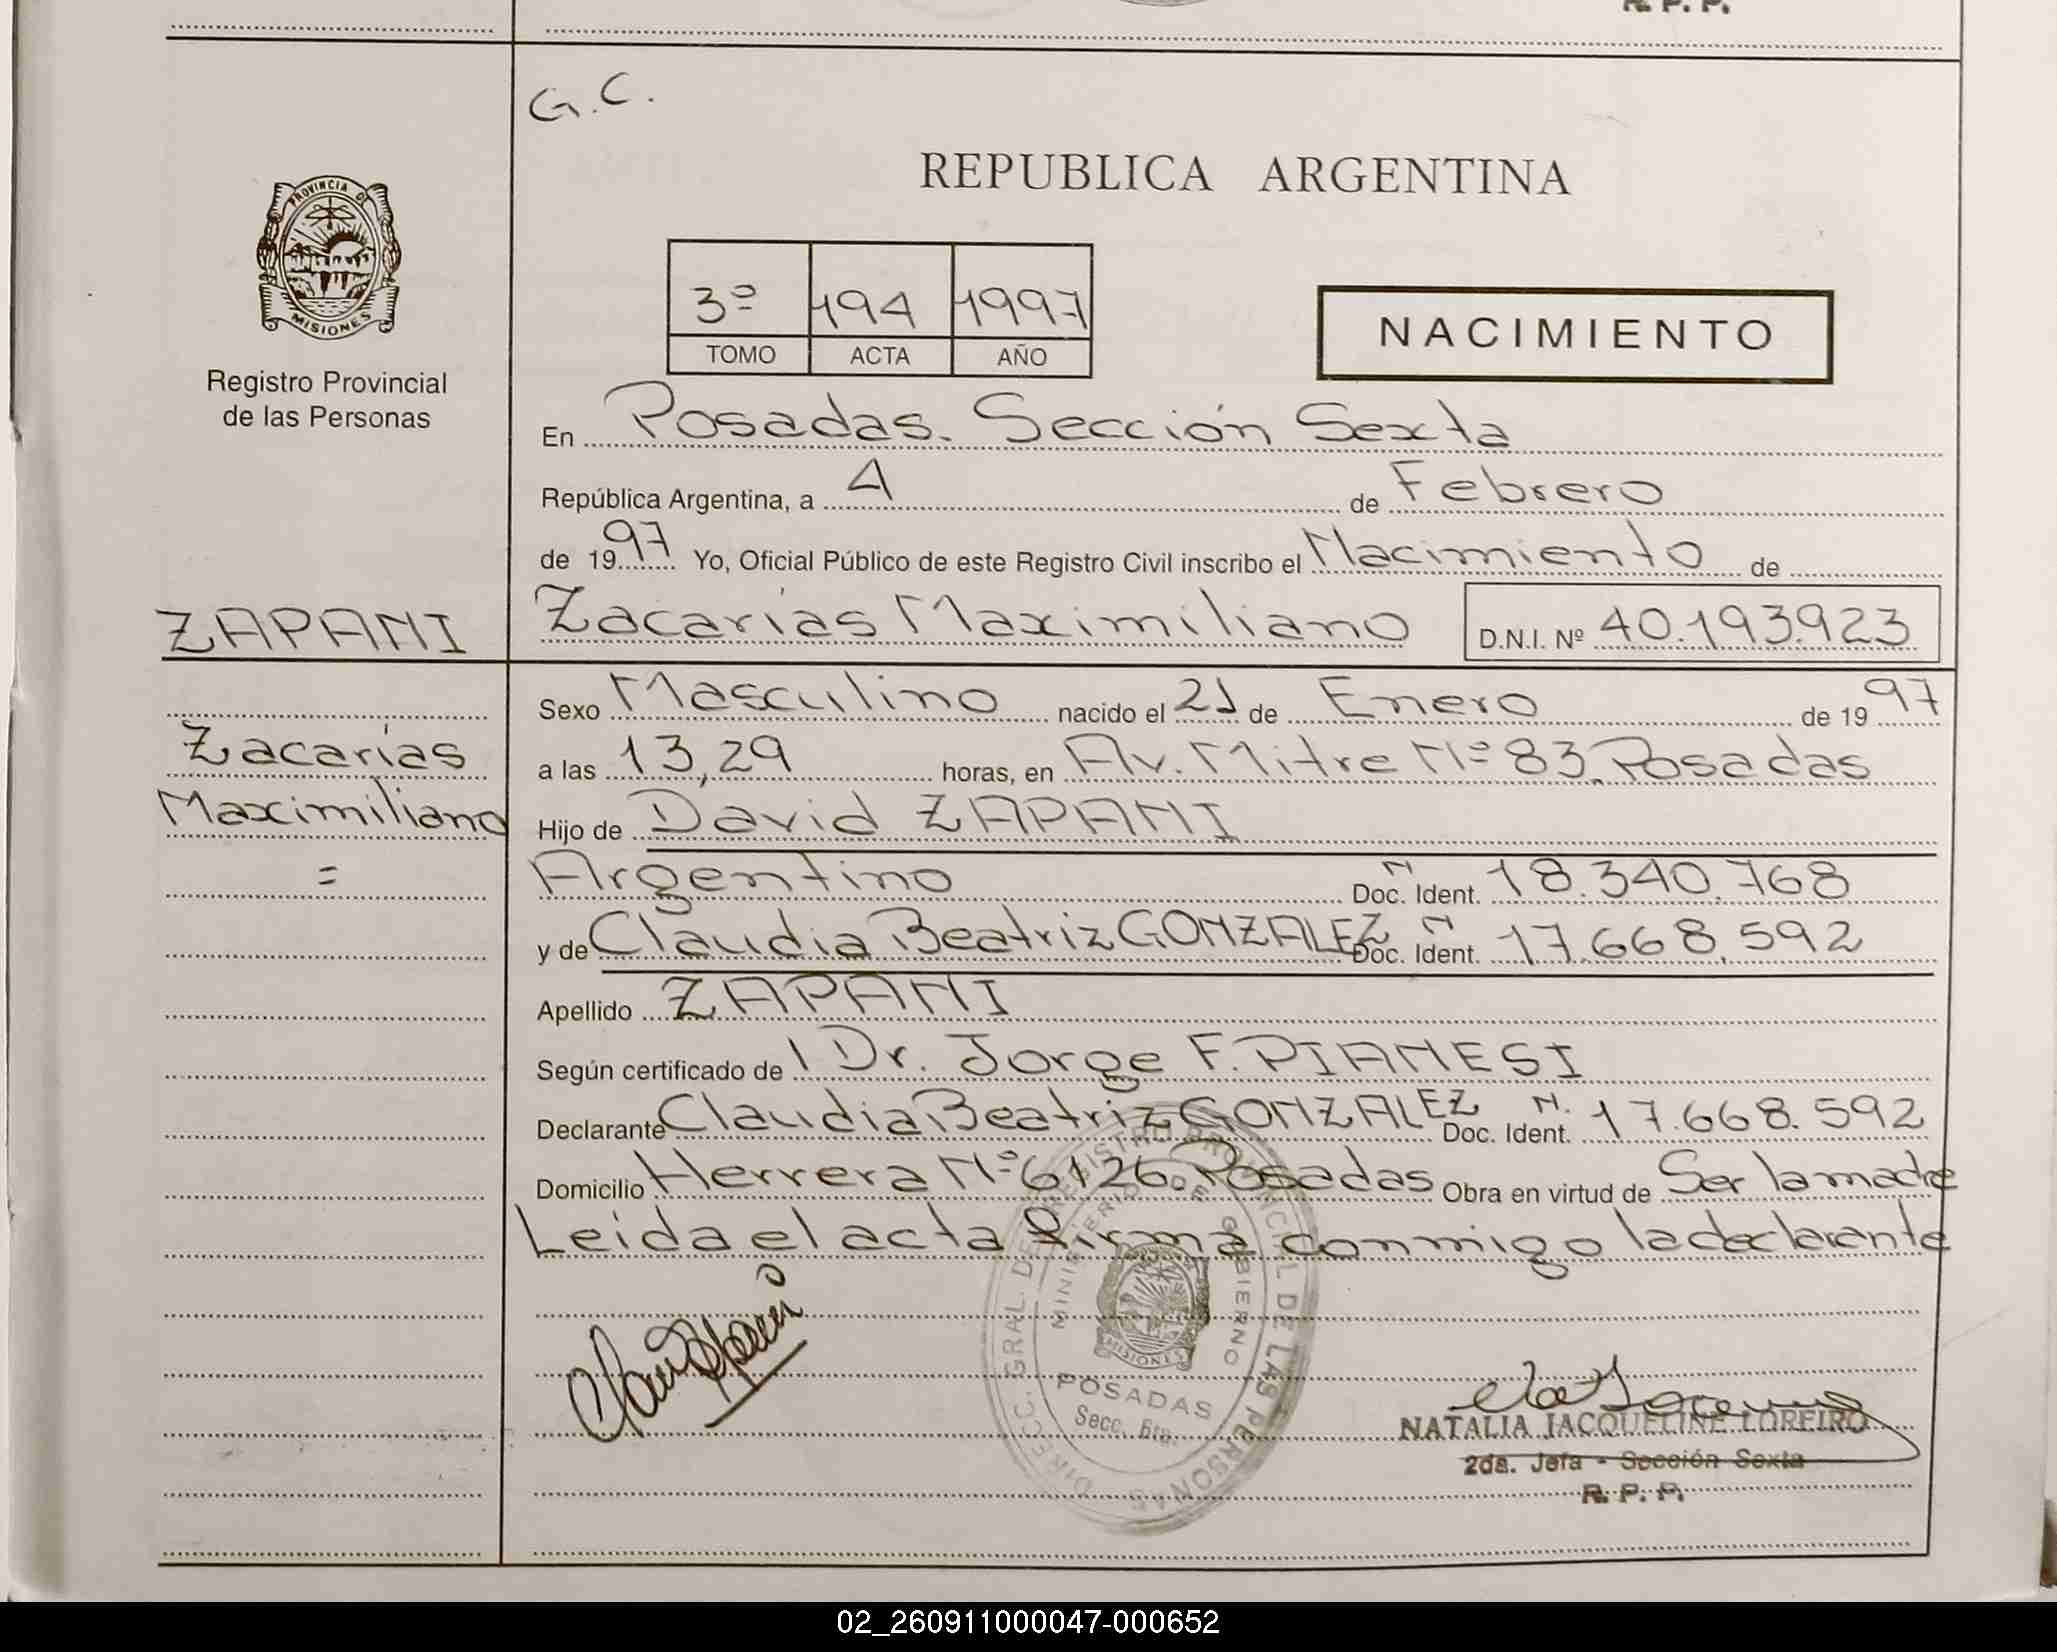 R. P. P.
G.C.
REPUBLICA ARGENTINA
PROVINCIA DE
MISIONES
Registro Provincial
de las Personas
3º 194 1997
TOMO ACTA AÑO
NACIMIENTO
En Posadas. Sección Sexta
República Argentina, a 4 de Febrero
de 1997 Yo, Oficial Público de este Registro Civil inscribo el Nacimiento de
ZAPANI
Zacarías Maximiliano D.N.I. Nº 40.193.923
Zacarías
Maximiliano
=
Sexo Masculino nacido el 21 de Enero de 1997
a las 13,29 horas, en Av. Mitre Nº 83. Posadas
Hijo de David ZAPANI
Argentino Doc. Ident. N 18.340.768
y de Claudia Beatriz GONZALEZ Doc. Ident. N 17.668.592
Apellido ZAPANI
Según certificado de l Dr. Jorge F. PIANESI
Declarante Claudia Beatriz GONZALEZ Doc. Ident. N. 17.668.592
Domicilio Herrera Nº 6126. Posadas Obra en virtud de Ser la madre
Leída el acta firma conmigo la declarante
DIRECC. GRAL. DE REGISTRO PROVINCIAL DE LAS PERSONAS
MINISTERIO DE GOBIERNO
MISIONES
POSADAS
Secc. 6ta.
NATALIA JACQUELINE LOREIRO
2da. Jefa - Sección Sexta
R. P. P.
02_260911000047-000652